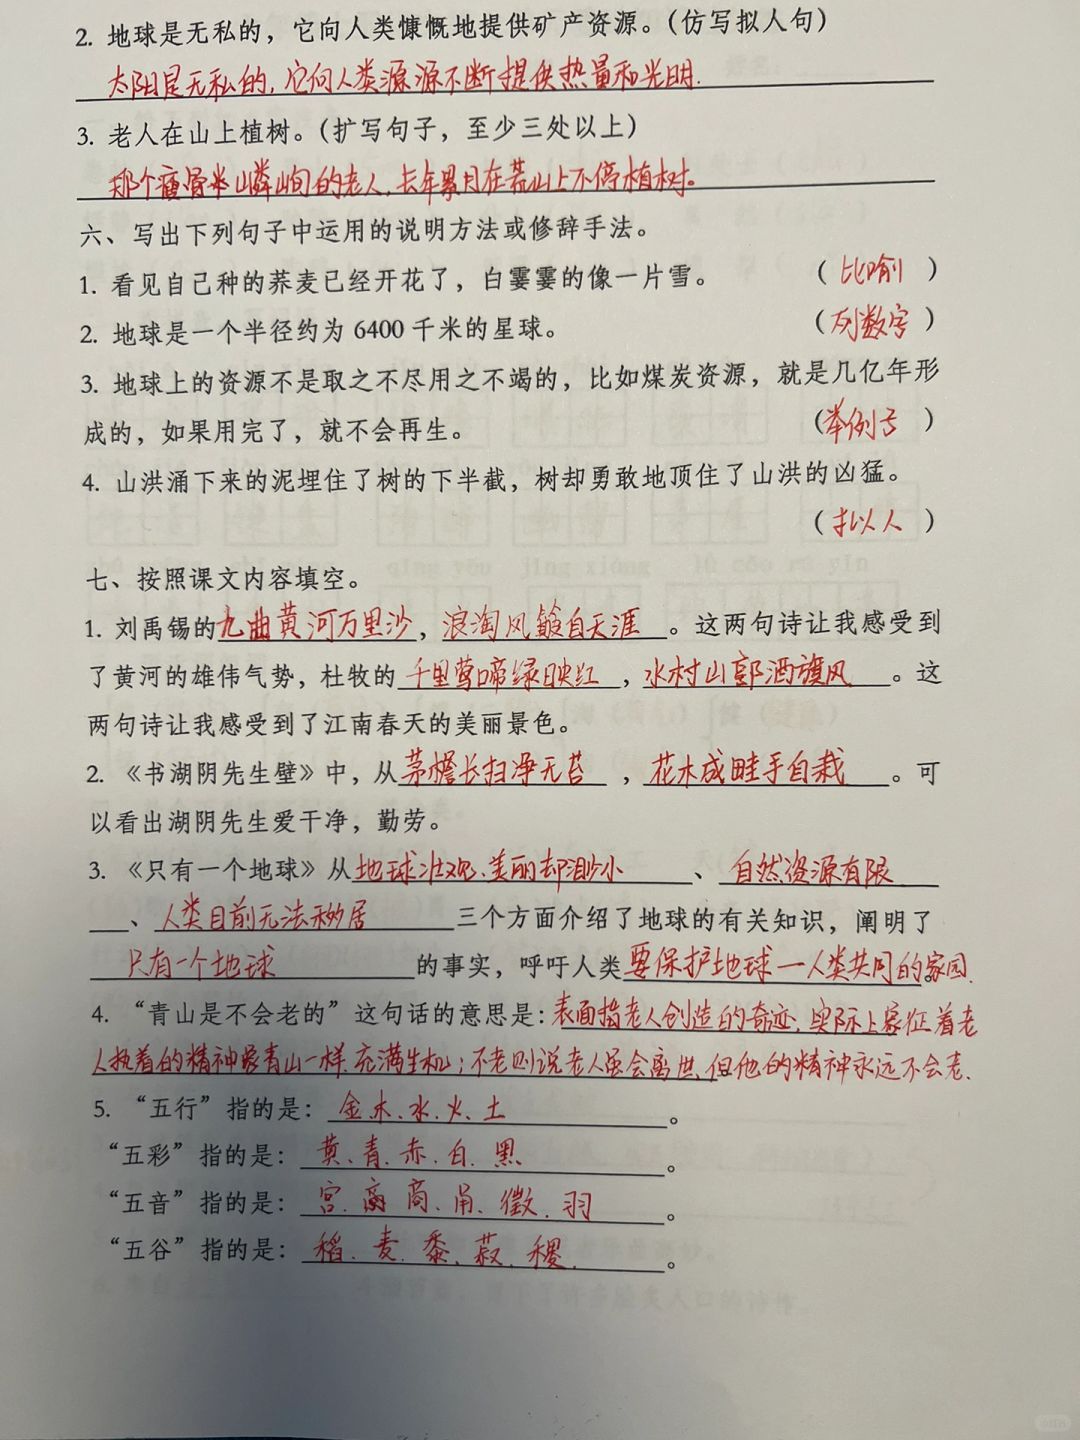 2. 地球是无私的，它向人类慷慨地提供矿产资源。（仿写拟人句）
太阳是无私的，它向人类源源不断提供热量和光明.
3. 老人在山上植树。（扩写句子，至少三处以上）
那个瘦骨嶙峋的老人，长年累月在荒山上不停植树。
六、写出下列句子中运用的说明方法或修辞手法。
1. 看见自己种的荞麦已经开花了，白霎霎的像一片雪。（比喻）
2. 地球是一个半径约为 6400 千米的星球。（列数字）
3. 地球上的资源不是取之不尽用之不竭的，比如煤炭资源，就是几亿年形
成的，如果用完了，就不会再生。（举例子）
4. 山洪涌下来的泥埋住了树的下半截，树却勇敢地顶住了山洪的凶猛。
（拟人）
七、按照课文内容填空。
1. 刘禹锡的九曲黄河万里沙，浪淘风簸自天涯。这两句诗让我感受到
了黄河的雄伟气势，杜牧的千里莺啼绿映红，水村山郭酒旗风。这
两句诗让我感受到了江南春天的美丽景色。
2. 《书湖阴先生壁》中，从茅檐长扫净无苔，花木成畦手自栽。可
以看出湖阴先生爱干净，勤劳。
3. 《只有一个地球》从地球壮观、美丽却渺小、自然资源有限
、人类目前无法移居三个方面介绍了地球的有关知识，阐明了
只有一个地球的事实，呼吁人类要保护地球—人类共同的家园.
4. “青山是不会老的”这句话的意思是：表面指老人创造的奇迹，实际上象征着老
人执着的精神象青山一样充满生机；不老则说老人虽会离世，但他的精神永远不会老.
5. “五行”指的是：金、木、水、火、土。
“五彩”指的是：黄、青、赤、白、黑。
“五音”指的是：宫、商、角、徵、羽。
“五谷”指的是：稻、麦、黍、菽、稷。